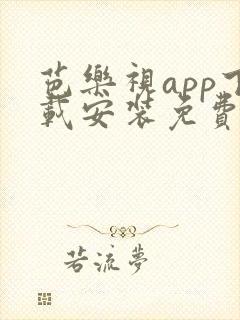 芭樂視app下
載安裝免費
若流夢